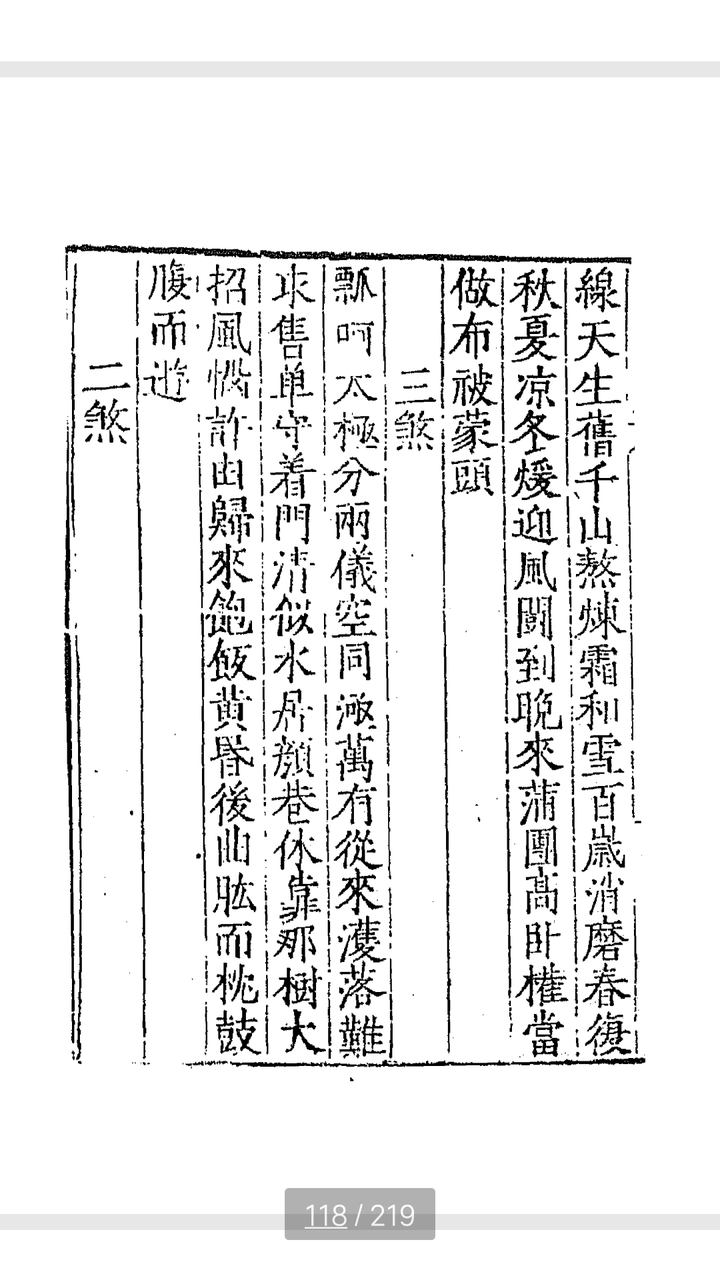 線天生舊千山熬煉霜和雪百歲消磨春復
秋夏凉冬煖迎風鬪到晚來蒲團高卧權當
做布被蒙頭
三煞
瓢呵太極分兩儀空同極萬有從來濩落難
求售单守着門清似水居顏巷休靠那樹大
招風慨許由歸來飽飯黃昏後曲肱而枕鼓
腹而遊
二煞
118 / 219